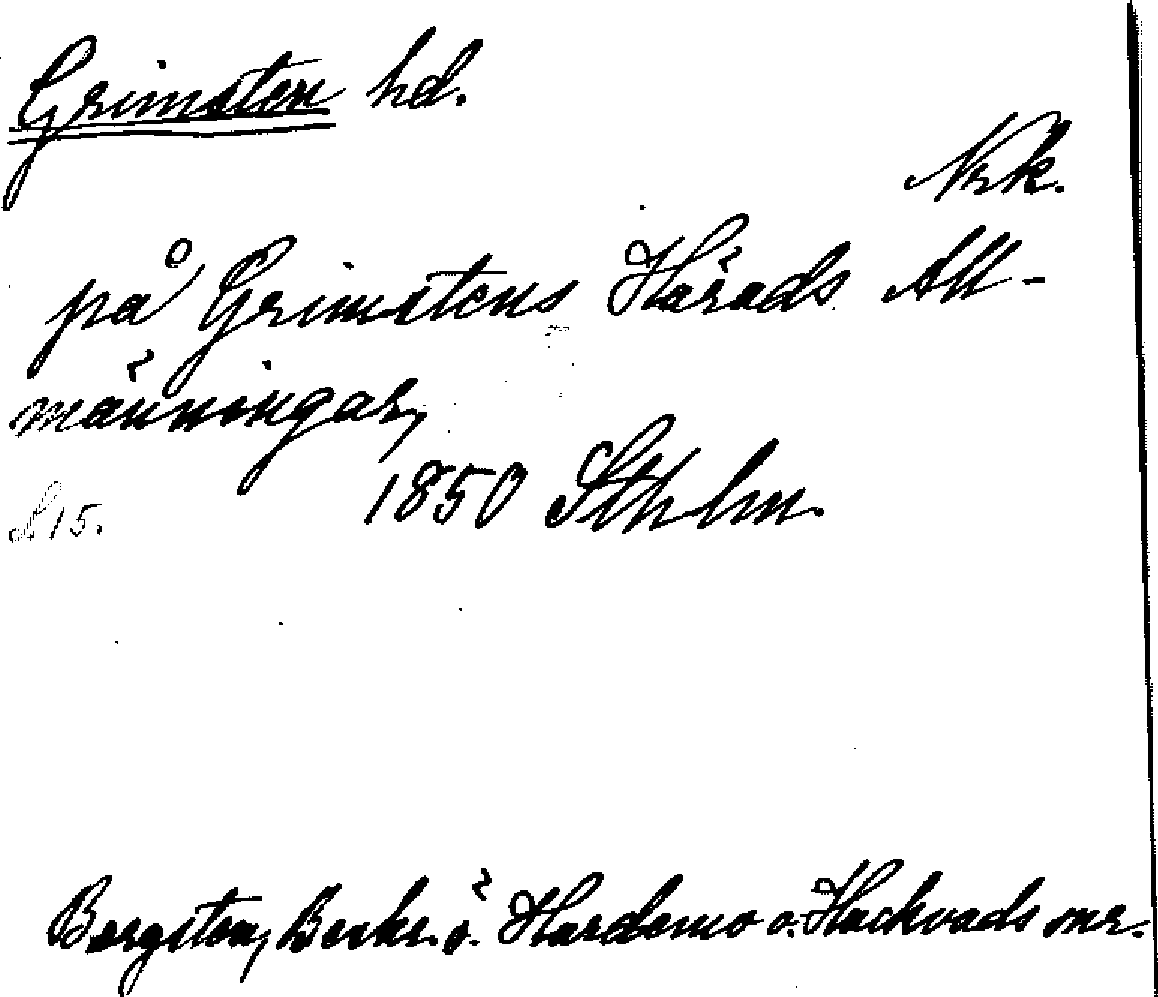 Grimsten hd.
Nrk.
på Grimstens Härads All-
männingar,
1850 Sthlm.
S 15.
Bergsten, Beskr. ö. Hardemo o. Hackvads snr.